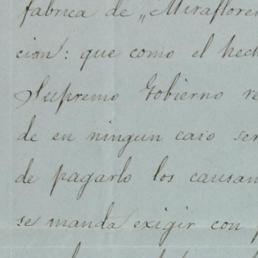 fabrica de „Miraflore
cion: que como el hec
Supremo Gobierno re
de en ningun caso ser
de pagarlo los causan
se manda exigir con